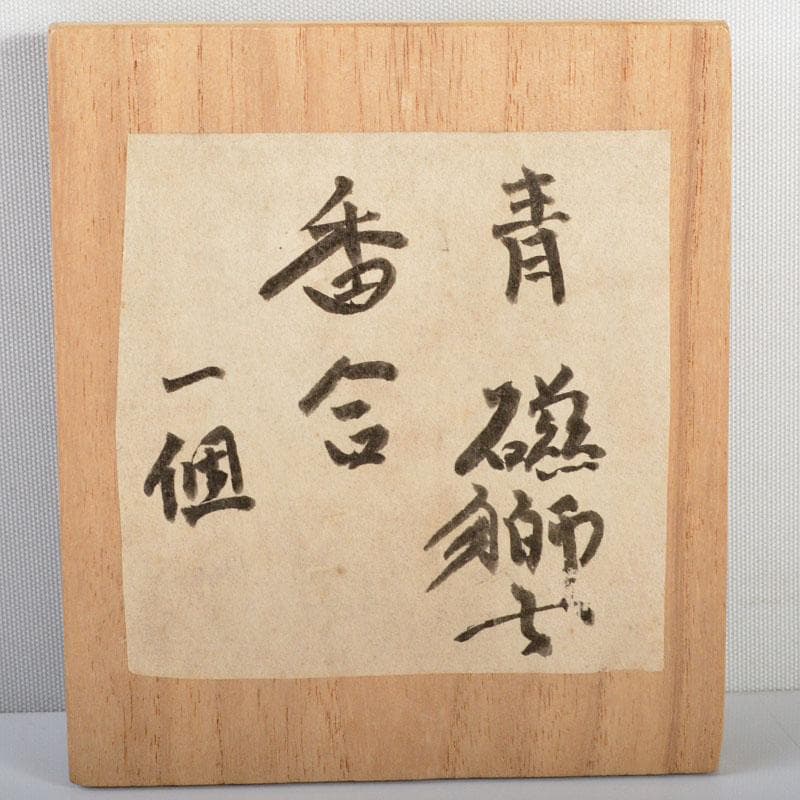 青磁獅子
香合
一個